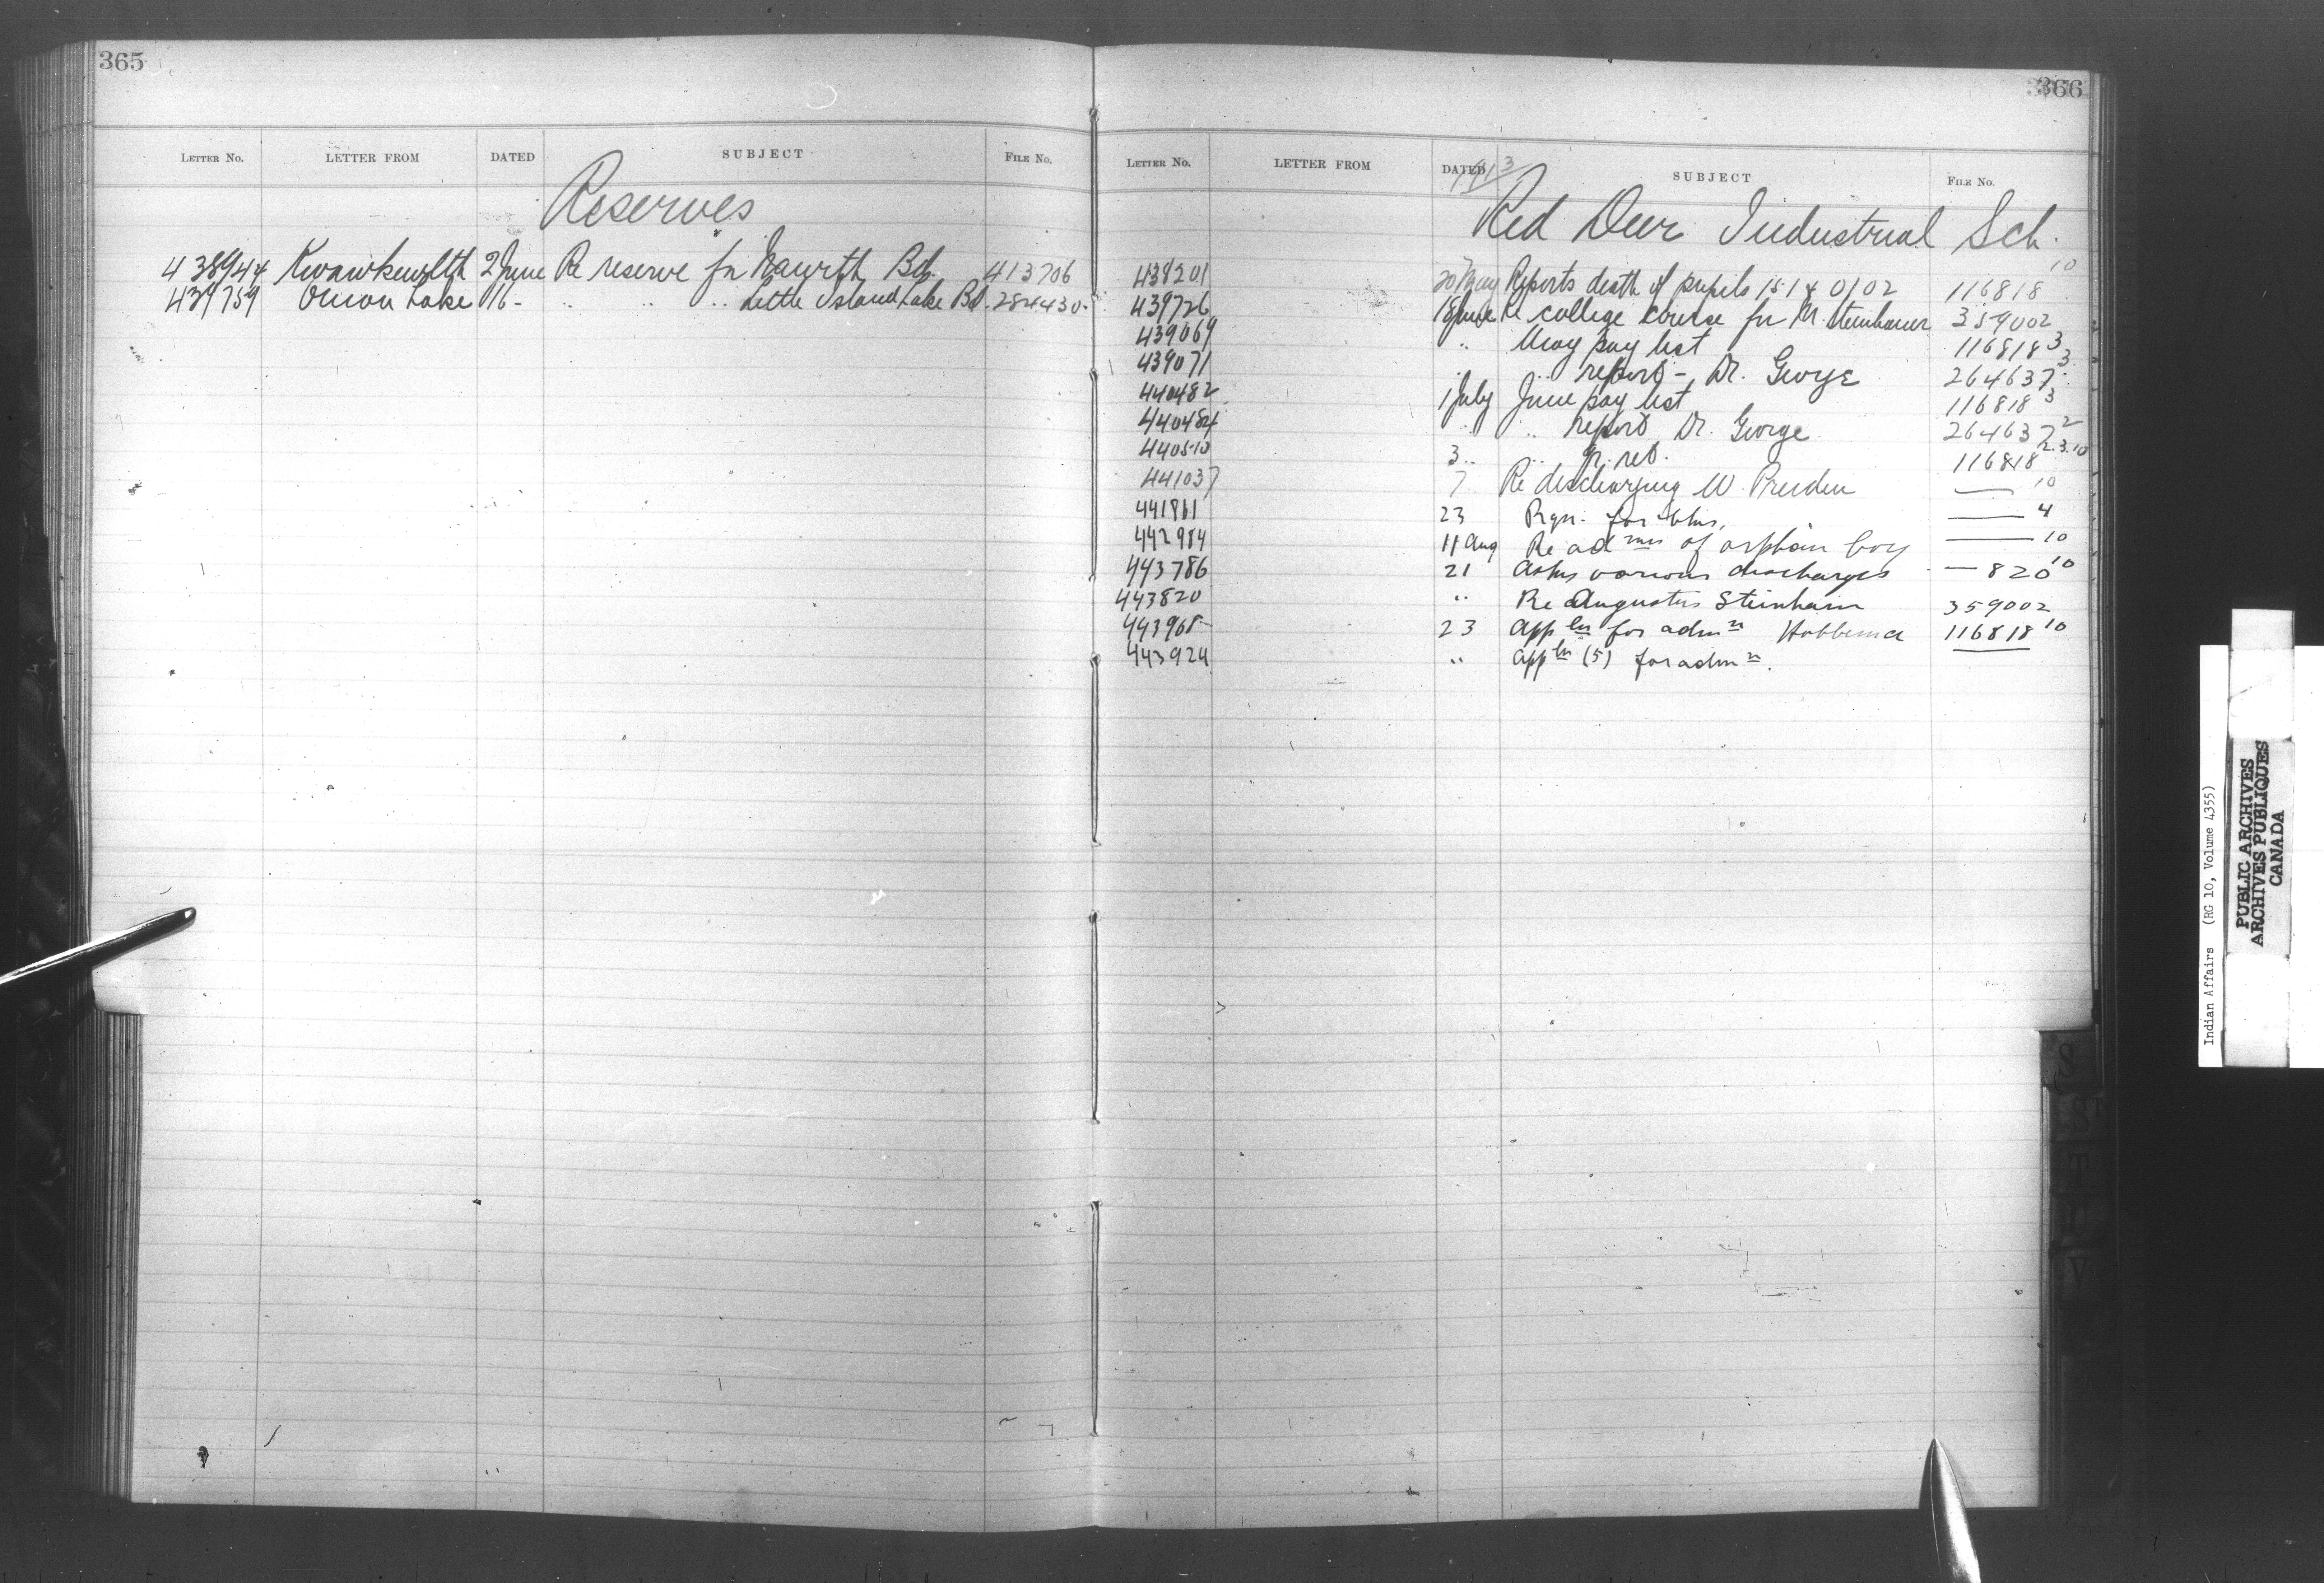 365
LETTER NO. LETTER FROM DATED SUBJECT FILE NO.
Reserves
438944 Kwawkewlth 2 June Re reserve for Bd. 413706
439759 Onion Lake 16 - " " " Little Island Lake Bd. 284430
366
LETTER NO. LETTER FROM DATED SUBJECT FILE NO.
1913
Red Deer Industrial Sch.
438201 20 May Reports death of pupils 15 14 0102 116818 10
439726 18 June Re college course for M. Steinhauer 359002
439069 " May pay list 116818 3
439071 " " report - Dr. George 264637 3
440482 1 July June pay list 116818 3
440484 " " report Dr. George 264637 2
440510 3 " " qr. ret. 116818 2.3.10
441037 7 Re discharging W. Pruden — 10
441861 23 Rqn. for — 4
442984 11 Aug Re admn of orphan boy — 10
443786 21 Asks various discharges — 820 10
443820 " Re Augustus Steinham 359002
443965 23 Appln for admn Hobbema 116818 10
443924 " Appln (5) for admn.
S
ST
T
U
V
Indian Affairs (RG 10, Volume 4355)
PUBLIC ARCHIVES
ARCHIVES PUBLIQUES
CANADA